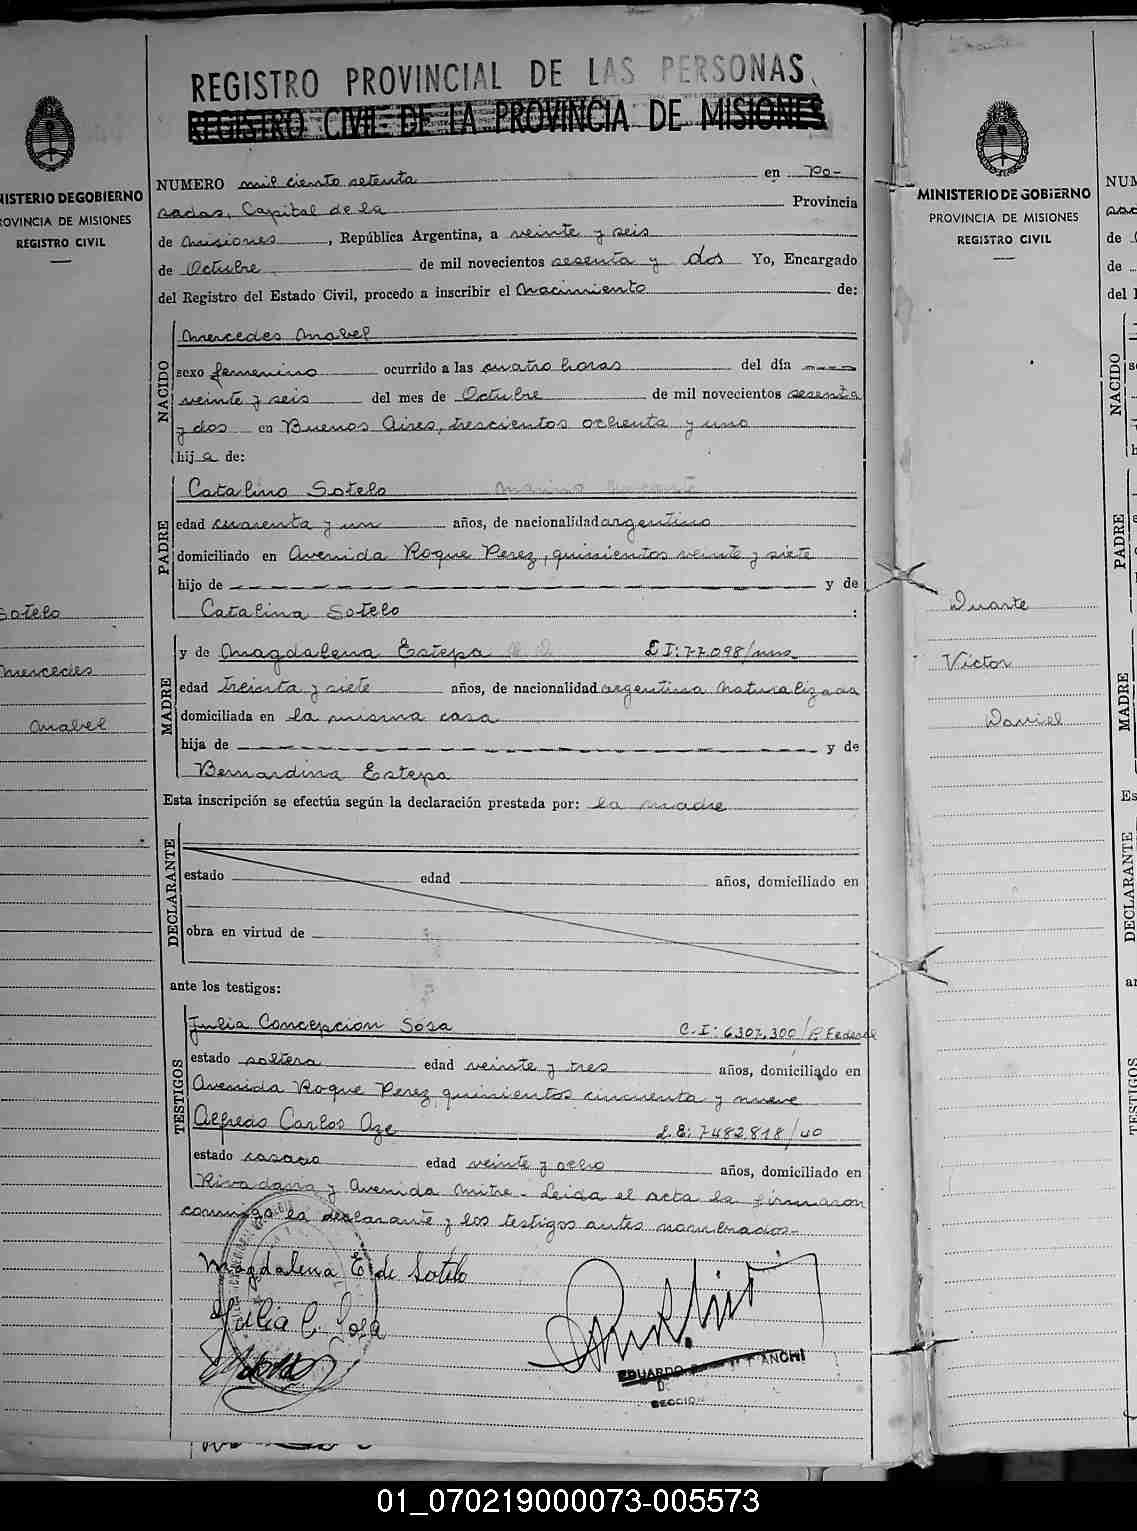 REGISTRO PROVINCIAL DE LAS PERSONAS
REGISTRO CIVIL DE LA PROVINCIA DE MISIONES
NISTERIO DE GOBIERNO
ROVINCIA DE MISIONES
REGISTRO CIVIL
Sotelo
Mercedes
Anabel
NUMERO mil ciento setenta en Po-
sadas, Capital de la Provincia
de Misiones, República Argentina, a veinte y seis
de Octubre de mil novecientos sesenta y dos Yo, Encargado
del Registro del Estado Civil, procedo a inscribir el Nacimiento de:
NACIDO
Mercedes Anabel
sexo femenino ocurrido a las cuatro horas del día
veinte y seis del mes de Octubre de mil novecientos sesenta
y dos en Buenos Aires, trescientos ochenta y uno
hija de:
PADRE
Catalino Sotelo
edad cuarenta y un años, de nacionalidad argentino
domiciliado en Avenida Roque Perez, quinientos veinte y siete
hijo de y de
Catalina Sotelo :
MADRE
y de Magdalena Estepa
edad treinta y siete años, de nacionalidad argentina naturalizada
domiciliada en la misma casa
hija de y de
Bernardina Estepa
Esta inscripción se efectúa según la declaración prestada por: la madre
DECLARANTE
estado edad años, domiciliado en
obra en virtud de
ante los testigos:
TESTIGOS
Julia Concepción Sosa C.I: 6307.300/P. Federal
estado soltera edad veinte y tres años, domiciliado en
Avenida Roque Perez, quinientos cincuenta y nueve
Alfredo Carlos Oze L.E: 7482.818/
estado casado edad veinte y ocho años, domiciliado en
Rivadavia y Avenida Mitre - Leida el acta la firmaron
conmigo la declarante y los testigos antes nombrados-
Magdalena E de Sotelo
Julia C. Sosa
EDUARDO
SECCION
MINISTERIO DE GOBIERNO
PROVINCIA DE MISIONES
REGISTRO CIVIL
Duarte
Victor
Daniel
NUM
de
de
del
NACIDO
PADRE
MADRE
Es
DECLARANTE
TESTIGOS
01_070219000073-005573